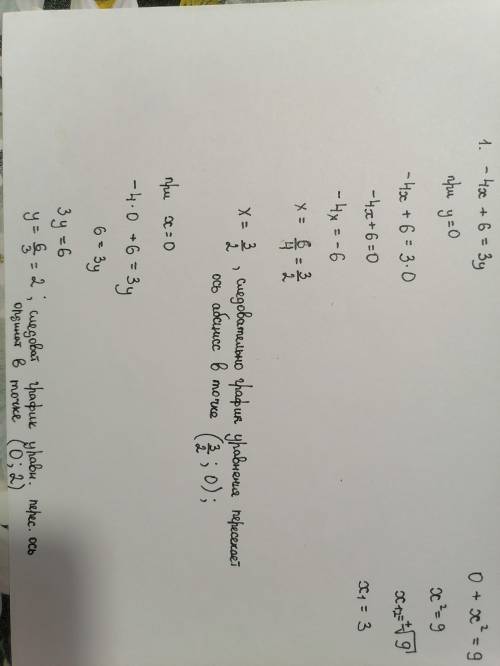 1. -4x + 6 = 3y
при y=0
-4x + 6 = 3·0
-4x+6=0
-4x = -6
x = 6/4 = 3/2
x = 3/2, следовательно график уравнения пересекает
ось абсцисс в точке (3/2; 0);
при x=0
-4·0 + 6 = 3y
6 = 3y
3y = 6
y = 6/3 = 2; следоват график уравн. перес. ось
ординат в точке (0; 2)
0 + x² = 9
x² = 9
x₁,₂ = ±√9
x₁ = 3